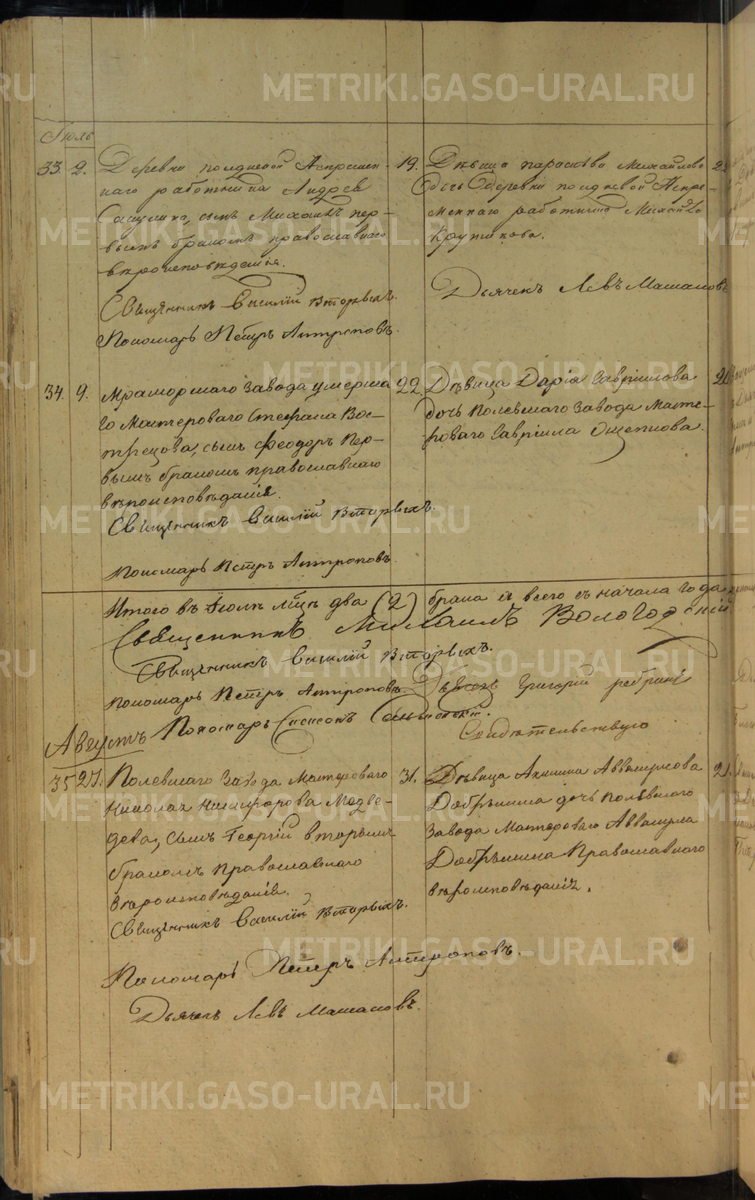 Июль
33. 2. Деревни полдневой
наго работника Андрея
сынъ Михаилъ пер-
вымъ бракомъ православнаго
вероисповеданiя.
Священникъ Василiй Вторыхъ.
Пономарь Петръ Антроповъ.
19. Девица параскева Михайлова
дочь деревни полдневой
работника Михаила
Крутикова.
Дьячекъ Левъ
34. 9. Мраморскаго завода умерша-
го Мастероваго Стефана Вос-
трецова, сынъ Феодоръ пер-
вымъ бракомъ православнаго
вероисповѣданiя.
Священникъ Василiй Вторыхъ.
Пономарь Петръ Антроповъ
22. Дѣвица Дарiя Гаврiилова
дочь Полевскаго завода Масте-
роваго Гаврiила Ощепкова.
Итого въ Iюлѣ мцѣ два (2) брака и всего съ начала года
Священникъ Михаилъ Вологодскiй
Священникъ Василiй Вторыхъ.
Пономарь Петръ Антроповъ Григорiй
Пономарь
Свидетельствую
Августъ
35 27. Полевскаго завода Мастероваго
Николая Никифорова Медве-
дева, сынъ Георгiй вторымъ
бракомъ Православнаго
вероисповѣданiя.
Священникъ Василiй Вторыхъ.
Пономарь Петръ Антроповъ.
Дьячекъ Левъ
31. Дѣвица Акилина Аввакумова
Добрынина дочь полевскаго
завода Мастероваго Аввакума
Добрынина Православнаго
вероисповѣданiя.
METRIKI.GASO-URAL.RU